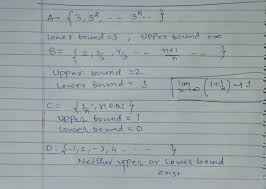 A = { 3, 3², ... 3ⁿ... }
Lower bound = 3 , Upper bound = ∞
B = { 2, 3/2, 4/3 ... n+1/n ... }
Upper bound = 2
Lower bound = 1 [ lim n→∞ (1+1/n) → 1 ]
C = { 1/n, n∈N }
Upper bound = 1
Lower bound = 0
D: {-1, 2, -3, 4 ... }
Neither upper or lower bound
exist